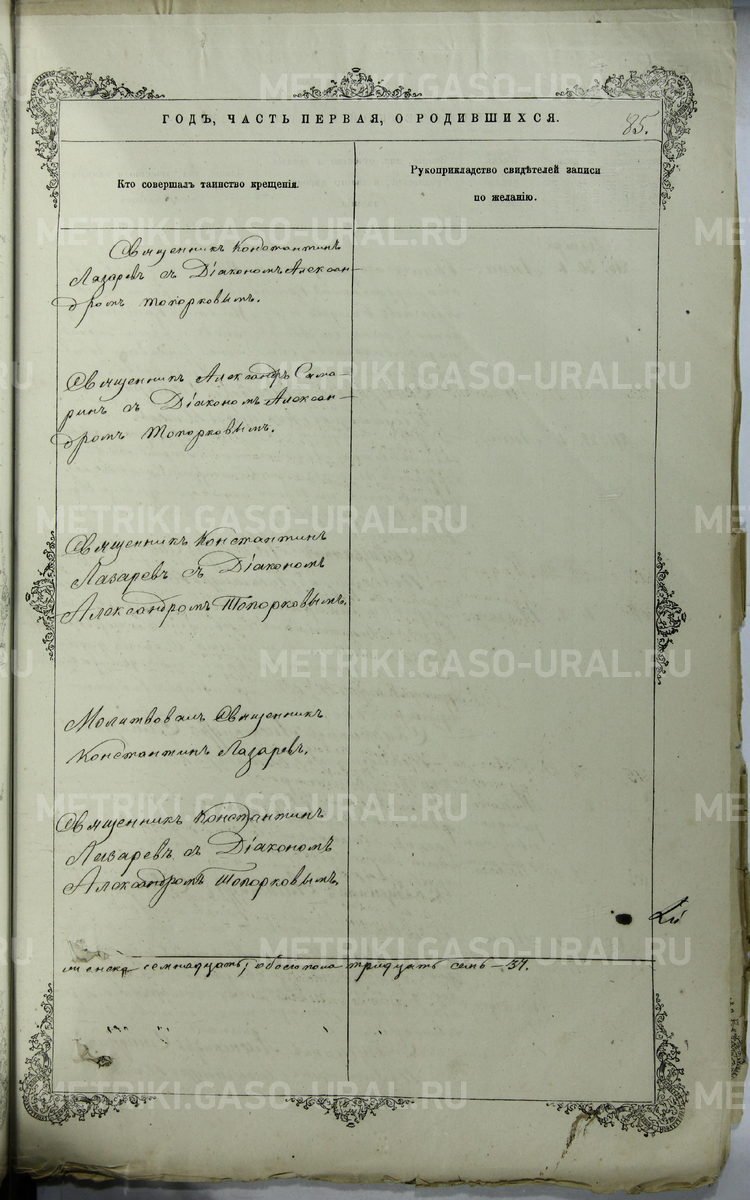 ГОДЪ, ЧАСТЬ ПЕРВАЯ, О РОДИВШИХСЯ.
85.
Кто совершалъ таинство крещенія.
Рукоприкладство свидѣтелей записи
по желанію.
Священникъ Константинъ
Лазаревъ съ Діакономъ Алексан-
дромъ Топорковымъ.
Священникъ Александръ Сама-
ринъ съ Діакономъ Алексан-
дромъ Топорковымъ.
Священникъ Константинъ
Лазаревъ съ Діакономъ
Александромъ Топорковымъ.
Молитвовалъ Священникъ
Константинъ Лазаревъ.
Священникъ Константинъ
Лазаревъ съ Діакономъ
Александромъ Топорковымъ.
семнадцать, обоего пола тридцать семь – 37.
METRIKI.GASO-URAL.RU